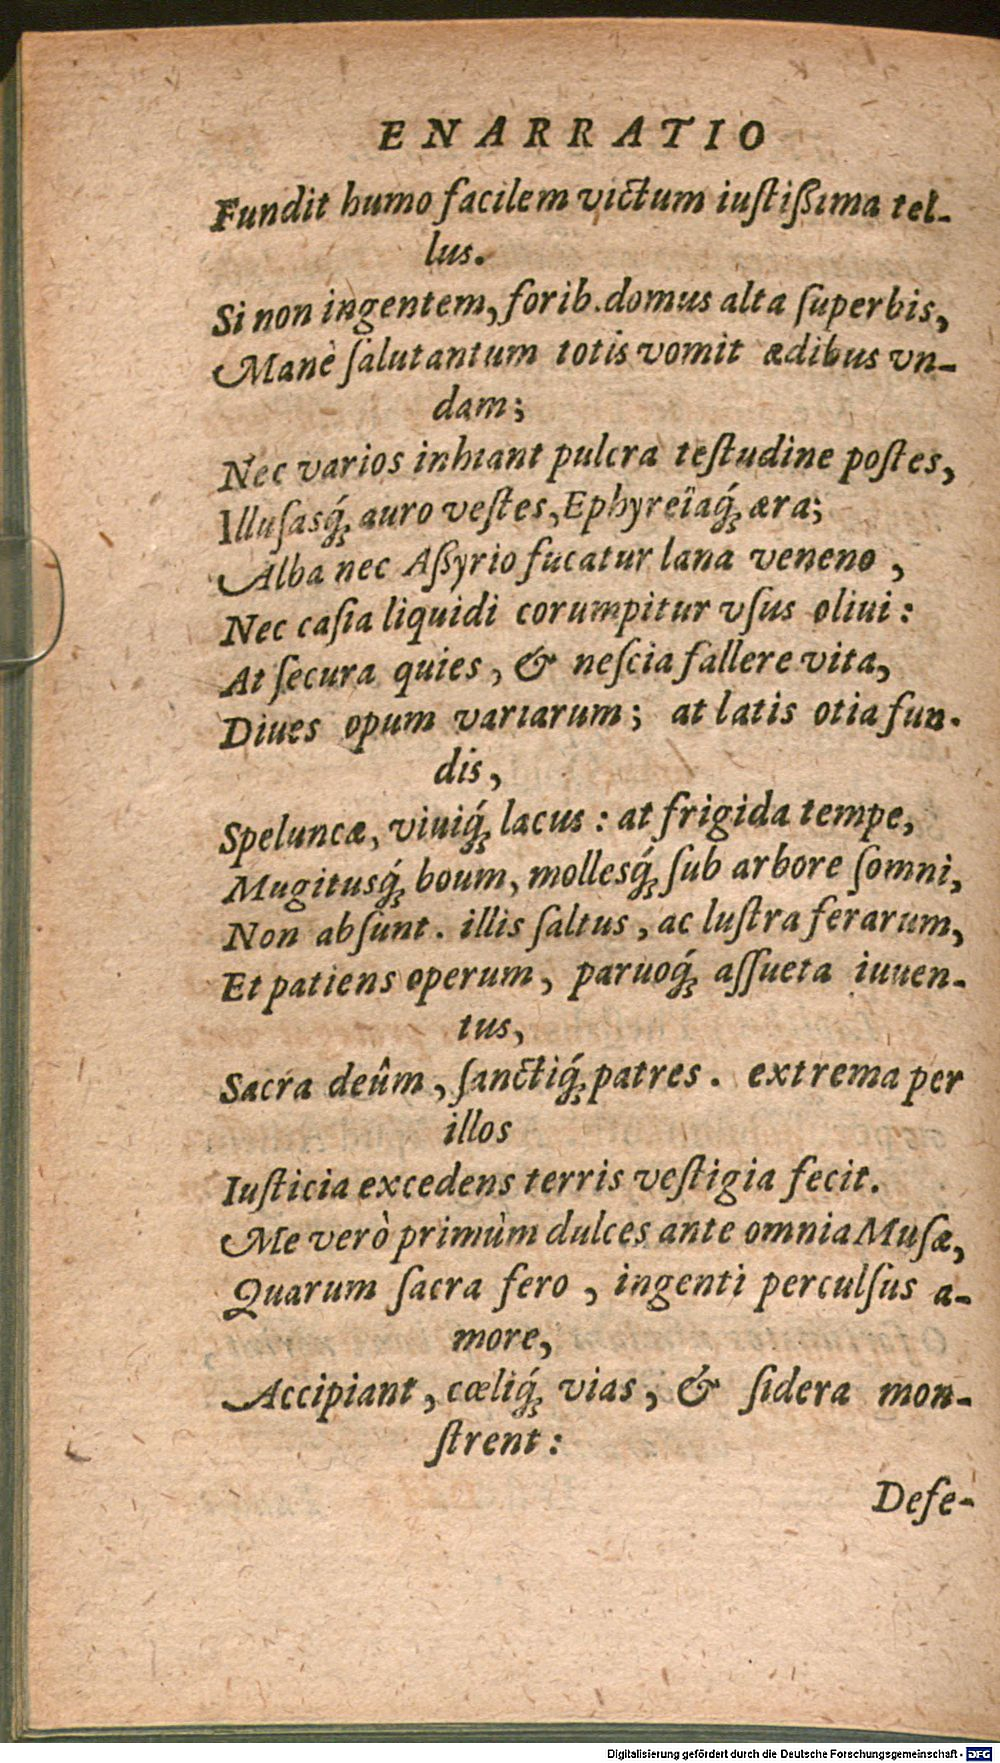 ENARRATIO
Fundit humo facilem victum iuſtißima tel-
lus.
Si non ingentem, forib. domus alta ſuperbis,
Manè ſalutantum totis vomit ædibus vn-
dam;
Nec varios inhiant pulcra teſtudine poſtes,
Illuſasq́ꝫ auro veſtes, Ephyreïaq́ꝫ æra;
Alba nec Aßyrio fucatur lana veneno,
Nec caſia liquidi corumpitur vſus oliui:
At ſecura quies, & neſcia fallere vita,
Diues opum variarum; at latis otia fun-
dis,
Speluncæ, viuiq́ꝫ lacus: at frigida tempe,
Mugitusq́ꝫ boum, mollesq́ꝫ ſub arbore ſomni,
Non abſunt. illis ſaltus, ac luſtra ferarum,
Et patiens operum, paruoq́ꝫ aſſueta iuuen-
tus,
Sacra deûm, ſanctiq́ꝫ patres. extrema per
illos
Iuſticia excedens terris veſtigia fecit.
Me verò primùm dulces ante omnia Muſæ,
Quarum ſacra fero, ingenti perculſus a-
more,
Accipiant, cœliq́ꝫ vias, & ſidera mon-
ſtrent:
Defe-
Digitalisierung gefördert durch die Deutsche Forschungsgemeinschaft - DFG